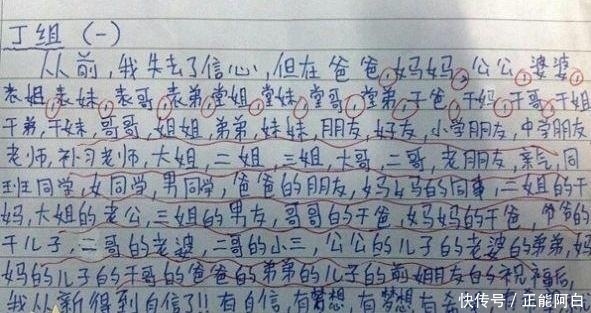 丁组 (一)
从前,我失去了信心,但在爸爸,妈妈,公公,婆婆
表姐,表妹,表哥,表弟,堂姐,堂妹,堂哥,堂弟,干爸,干妈,干哥,干姐
干弟,干妹,哥哥,姐姐,弟弟,妹妹,朋友,好友,小学朋友,中学朋友
老师,补习老师,大姐,二姐,三姐,大哥,二哥,老朋友,亲戚,同
班同学,女同学,男同学,爸爸的朋友,妈妈的同事,二姐的干
妈,大姐的老公,三姐的男友,哥哥的干爸,妈妈的干爸,爷爷的
干儿子,二哥的老婆,二哥的小三,公公的儿子的老婆的弟弟,妈
妈的儿子的干哥的爸爸的弟弟的儿子的前女朋友的祝福后,
我从新得到自信了!!有自信,有梦想,有梦想有
快传号/正能阿白